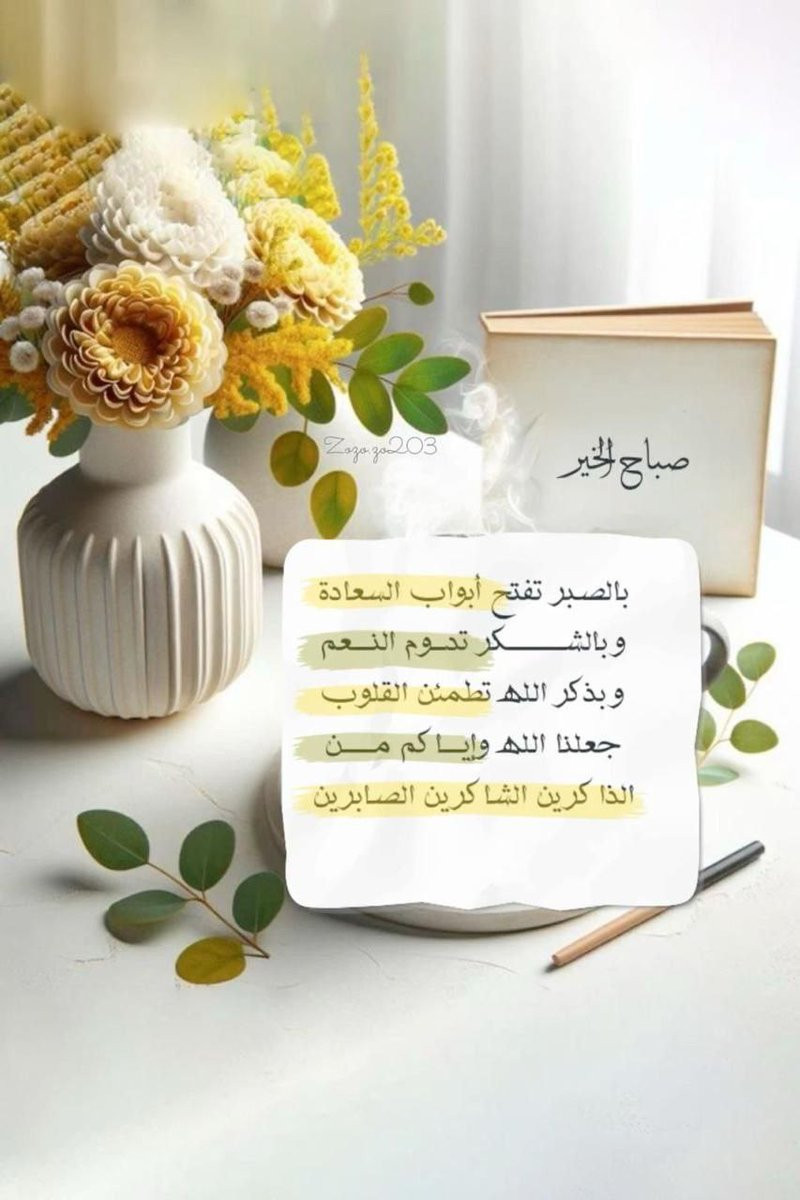 Zozo.zo203
صباح الخير
بالصبر تفتح أبواب السعادة
وبالشـــــكر تدوم النعم
وبذكر الله تطمئن القلوب
جعلنا الله وإياكم مـن
الذاكرين الشاكرين الصابرين